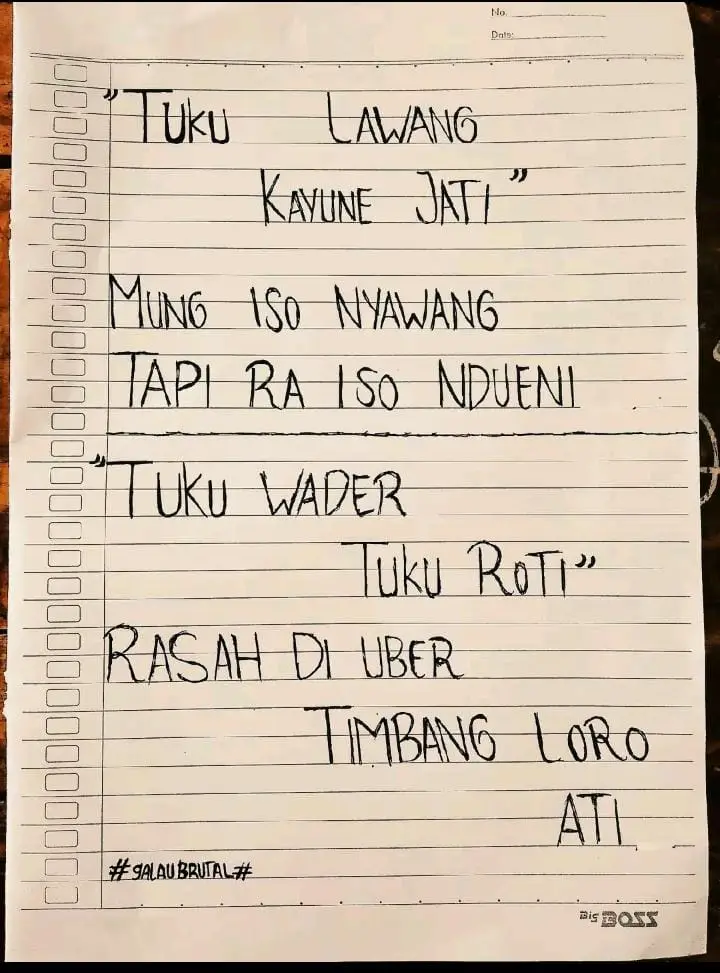 No.
Date:
"TUKU LAWANG
KAYUNE JATI"
MUNG ISO NYAWANG
TAPI RA ISO NDUENI
"TUKU WADER
TUKU ROTI"
RASAH DI UBER
TIMBANG LORO
ATI
#GALAUBRUTAL#
Big BOSS